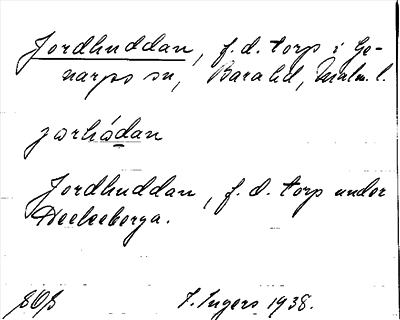 Jordhuddan, f. d. torp i Ge-
narps sn, Bara hd, Malm. l.
Jordhuddan, f. d. torp under
Heckeberga.
I. Ingers 1938.